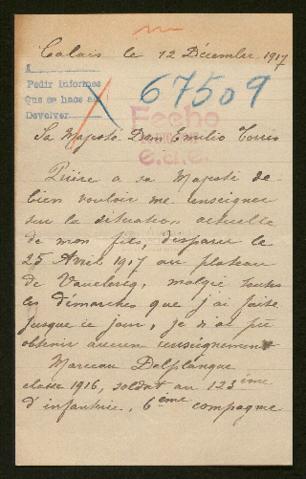 Calais le 12 Décembre 1917
1
Pedir informes
Que se hace así
Devolver
67509
Fecho
Sa Majesté Don Emilio Torrès
Prière a sa Majesté de
bien vouloir me renseigner
sur la situation actuelle
de mon fils, disparu le
25 Avril 1917 au plateau
de Vauclerq, malgré toutes
les démarches que j'ai faite
jusque ce jour, je n'ai pu
obtenir aucun renseignement
Marceau Delplanque
classe 1916, soldat au 123ème
d'infanterie, 6ème compagnie